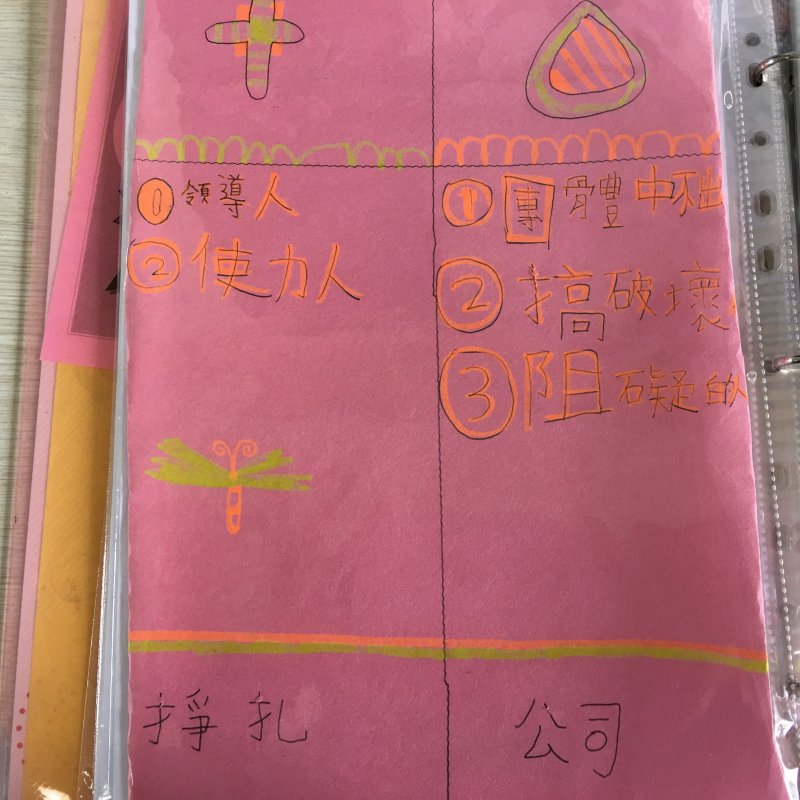 ① 領導人
② 使力人
① 團體中
② 搞破壞
③ 阻礙的人
掙扎
公司